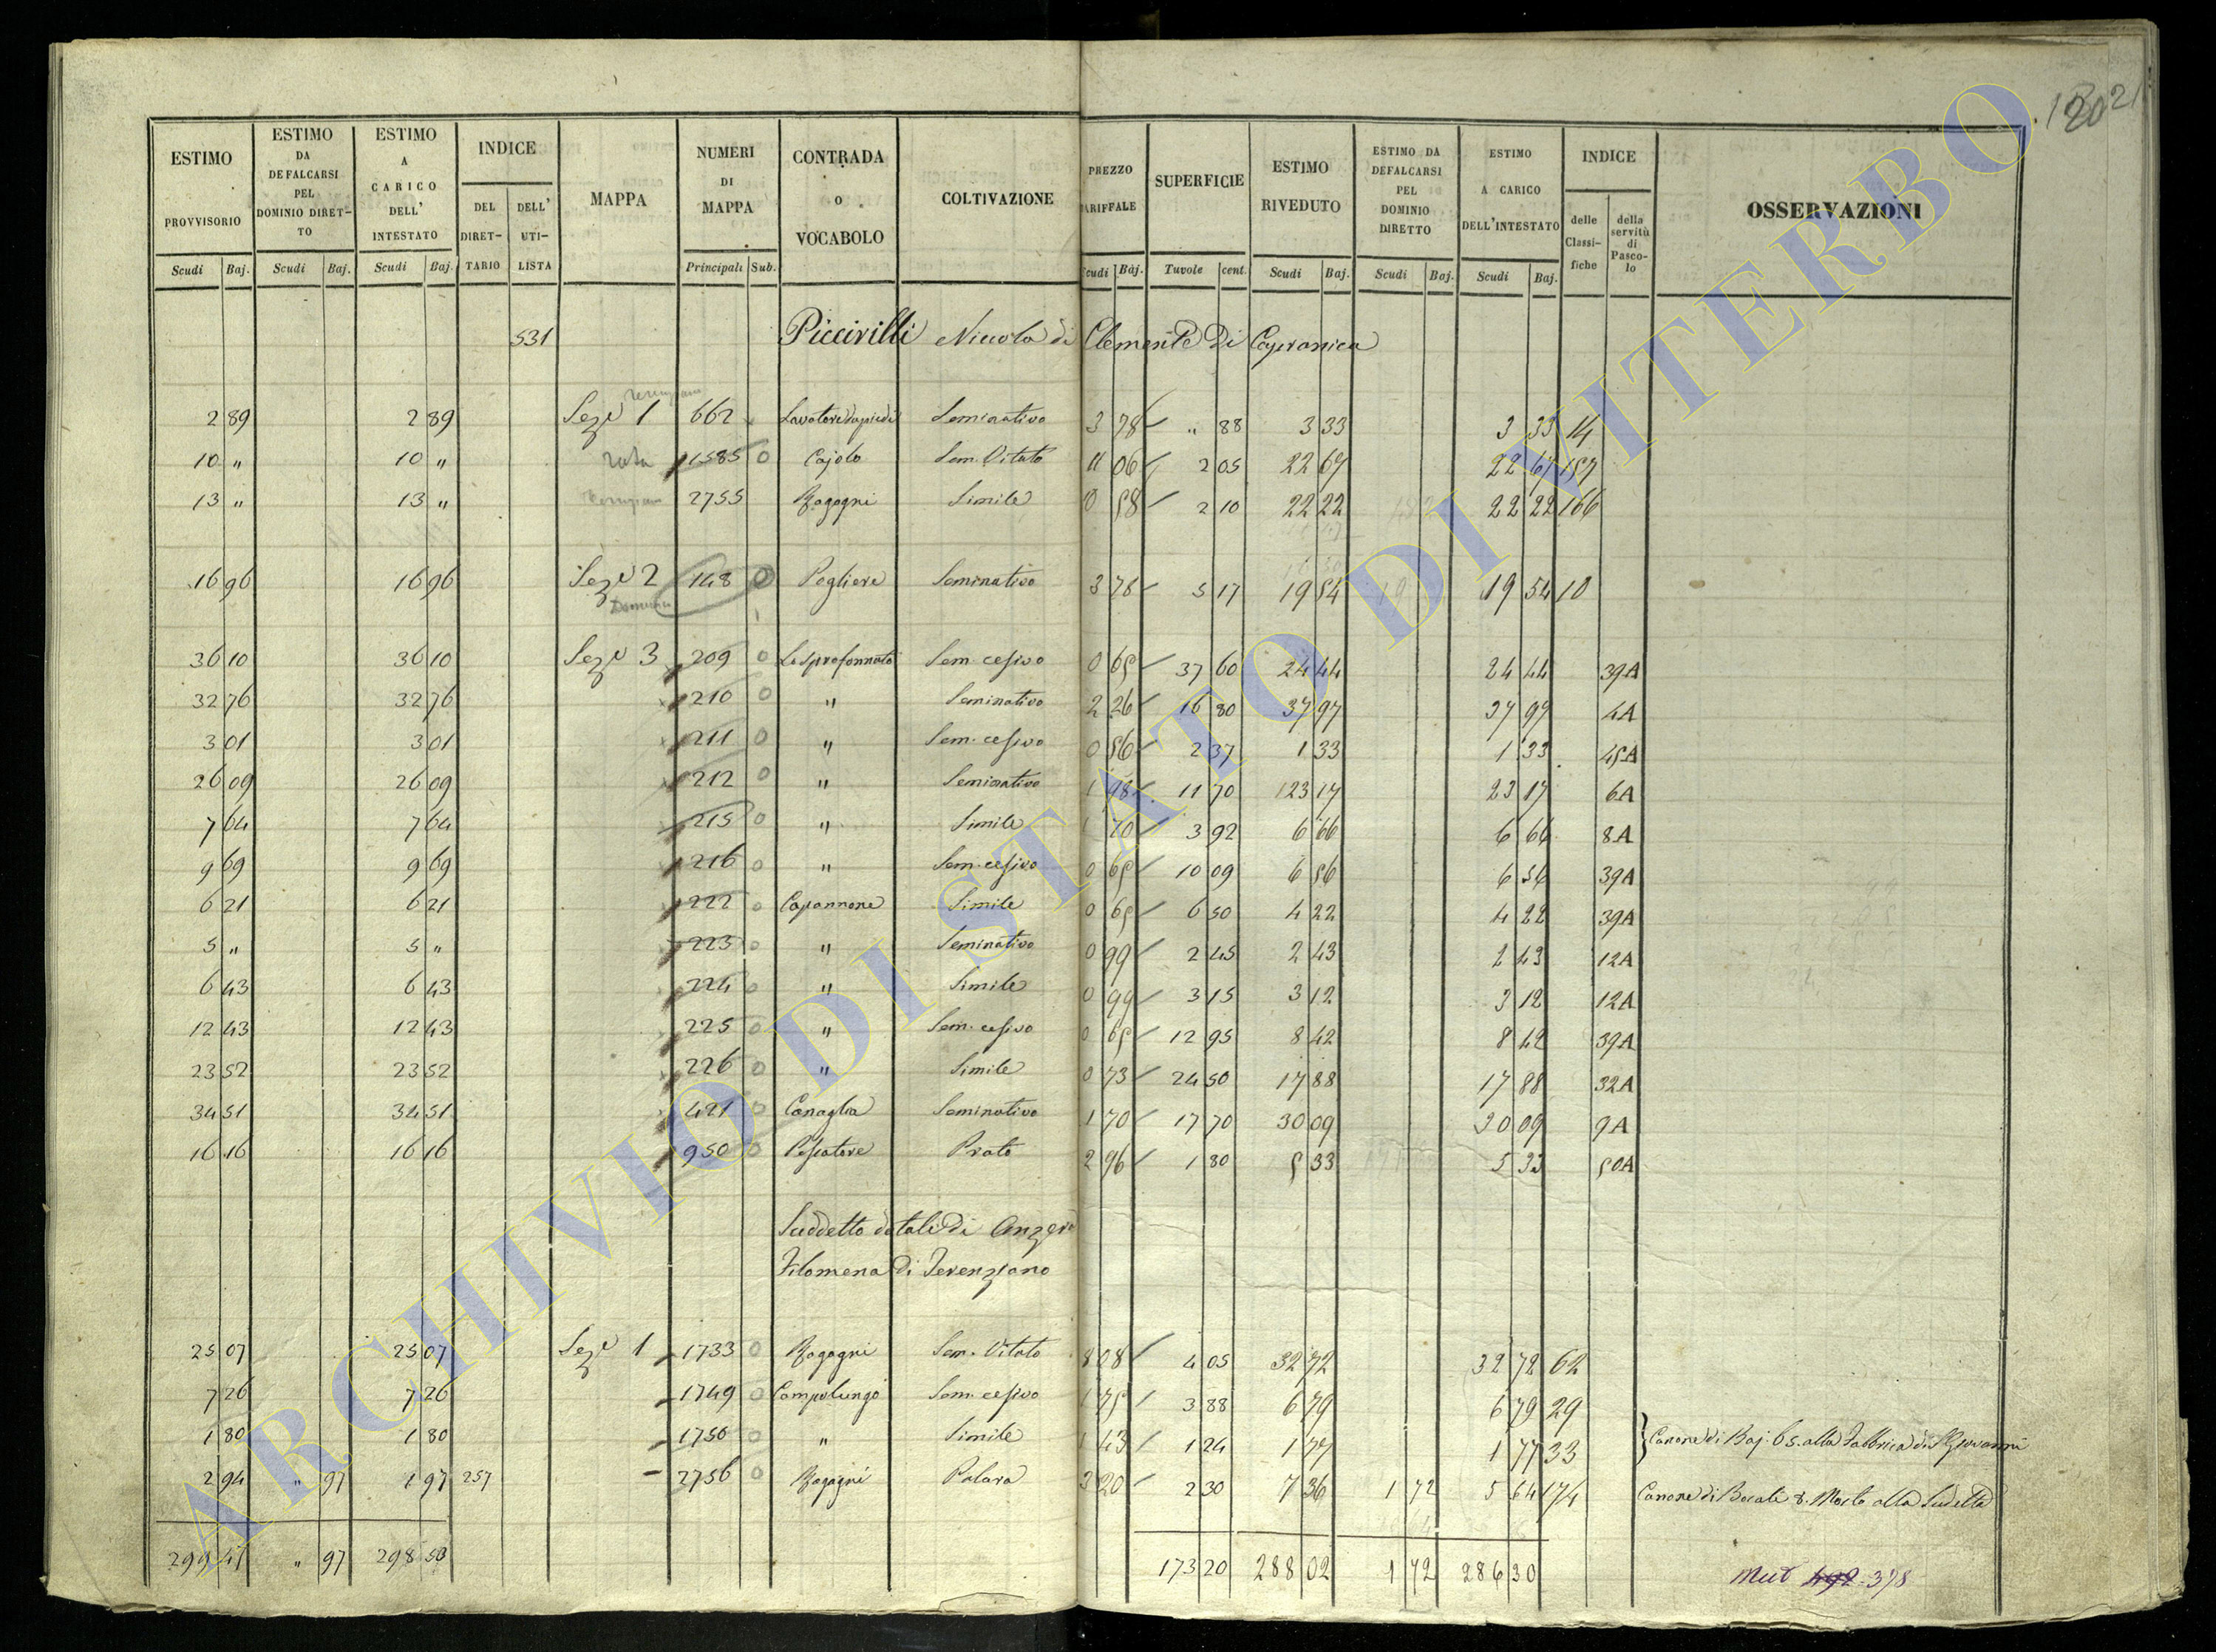 20 21
ESTIMO PROVVISORIO | ESTIMO DA DEFALCARSI PEL DOMINIO DIRET-TO | ESTIMO A CARICO DELL' INTESTATO | INDICE DEL DIRET-TARIO | DELL' UTI-LISTA | MAPPA | NUMERI DI MAPPA | CONTRADA O VOCABOLO | COLTIVAZIONE | PREZZO TARIFFALE | SUPERFICIE | ESTIMO RIVEDUTO | ESTIMO DA DEFALCARSI PEL DOMINIO DIRETTO | ESTIMO A CARICO DELL'INTESTATO | INDICE delle Classi-fiche | della servitù di Pasco-lo | OSSERVAZIONI
Scudi Baj. | Scudi Baj. | Scudi Baj. | Principali Sub. | Scudi Baj. | Tavole cent. | Scudi Baj. | Scudi Baj. | Scudi Baj.
531 Piccirilli Niccola di Clemente Di Capranica
2 89 2 89 Sez.e 1 662 Seminativo 3 78 " 88 3 33 3 33 14
10 " 10 " 1585 0 Cajolo Sem. Vitato 11 06 2 05 22 67 22 67 157
13 " 13 " 2755 Bagagni Simile 10 58 2 10 22 22 22 22 166
16 96 16 96 Sez.e 2 148 0 Pogliere Seminativo 3 78 5 17 19 54 19 54 10
36 10 36 10 Sez.e 3 209 0 Lo Sprofonnato Sem. cesivo 0 65 37 60 24 44 24 44 39A
32 76 32 76 210 0 " Seminativo 2 26 16 80 37 97 37 97 4A
3 01 3 01 211 0 " Sem. cesivo 0 56 2 37 1 33 1 33 45A
26 09 26 09 212 0 " Seminativo 1 98 11 70 23 17 23 17 6A
7 64 7 64 215 0 " Simile 1 70 3 92 6 66 6 66 8A
9 69 9 69 216 0 " Sem. cesivo 0 65 10 09 6 56 6 56 39A
6 21 6 21 222 0 Capannone Simile 0 65 6 50 4 22 4 22 39A
5 " 5 " 223 0 " Seminativo 0 99 2 45 2 43 2 43 12A
6 43 6 43 224 0 " Simile 0 99 3 15 3 12 3 12 12A
12 43 12 43 225 0 " Sem. cesivo 0 65 12 95 8 42 8 42 39A
23 52 23 52 226 0 " Simile 0 73 24 50 17 88 17 88 32A
34 51 34 51 421 0 Canaglia Seminativo 1 70 17 70 30 09 30 09 9A
16 16 16 16 950 0 Pescatore Prato 2 96 1 80 5 33 5 33 50A
Suddetto dotali Di Anzera
Filomena Di Terenziano
25 07 25 07 Sez.e 1 1733 0 Bagagni Sem. Vitato 8 08 4 05 32 72 32 72 62
7 26 7 26 1749 0 Campolungo Sem. cesivo 1 75 3 88 6 79 6 79 29
1 80 1 80 1750 0 " Simile 1 43 1 24 1 77 1 77 33 Canone di Baj. 65. alla Fabbrica di S. Giovanni
2 94 " 97 1 97 257 2756 0 Bagagni Palara 3 20 2 30 7 36 1 72 5 64 174 Canone di Bocali 8. Mosto alla Sudetta
299 47 " 97 298 50 173 20 288 02 1 72 286 30 Mut 378
ARCHIVIO DI STATO DI VITERBO